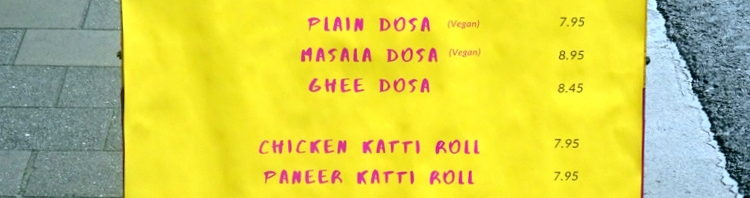 PLAIN DOSA (Vegan) 7.95
MASALA DOSA (Vegan) 8.95
GHEE DOSA 8.45
CHICKEN KATTI ROLL 7.95
PANEER KATTI ROLL 7.95